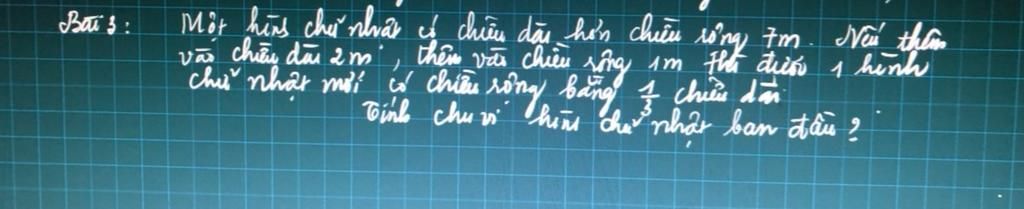 Bài 3: Một hình chữ nhật có chiều dài hơn chiều rộng 7m. Nếu thêm
vào chiều dài 2m, thêm vào chiều rộng 1m thì được 1 hình
chữ nhật mới có chiều rộng bằng 1/3 chiều dài
Tính chu vi hình chữ nhật ban đầu?